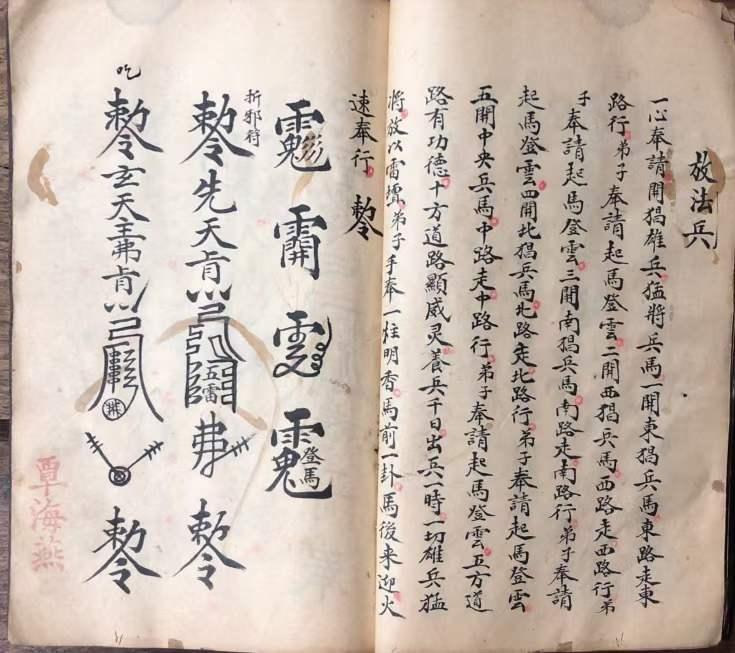 放法兵
一心奉請開猖雄兵猛將兵馬一開東猖兵馬東路走東
路行弟子奉請起馬登雲二開西猖兵馬西路走西路行弟
子奉請起馬登雲三開南猖兵馬南路走南路行弟子奉請
起馬登雲四開北猖兵馬北路走北路行弟子奉請起馬登雲
五開中央兵馬中路走中路行弟子奉請起馬登雲五方道
路有功德十方道路顯威灵養兵千日出兵一時一切雄兵猛
將放以雷壇弟子手奉一炷明香馬前一卦馬後来迎火
速奉行 勅令
登馬
折邪符
勅令先天肯五雷弗勅令
吃
勅令玄天王弗肯勅令
覃海燕